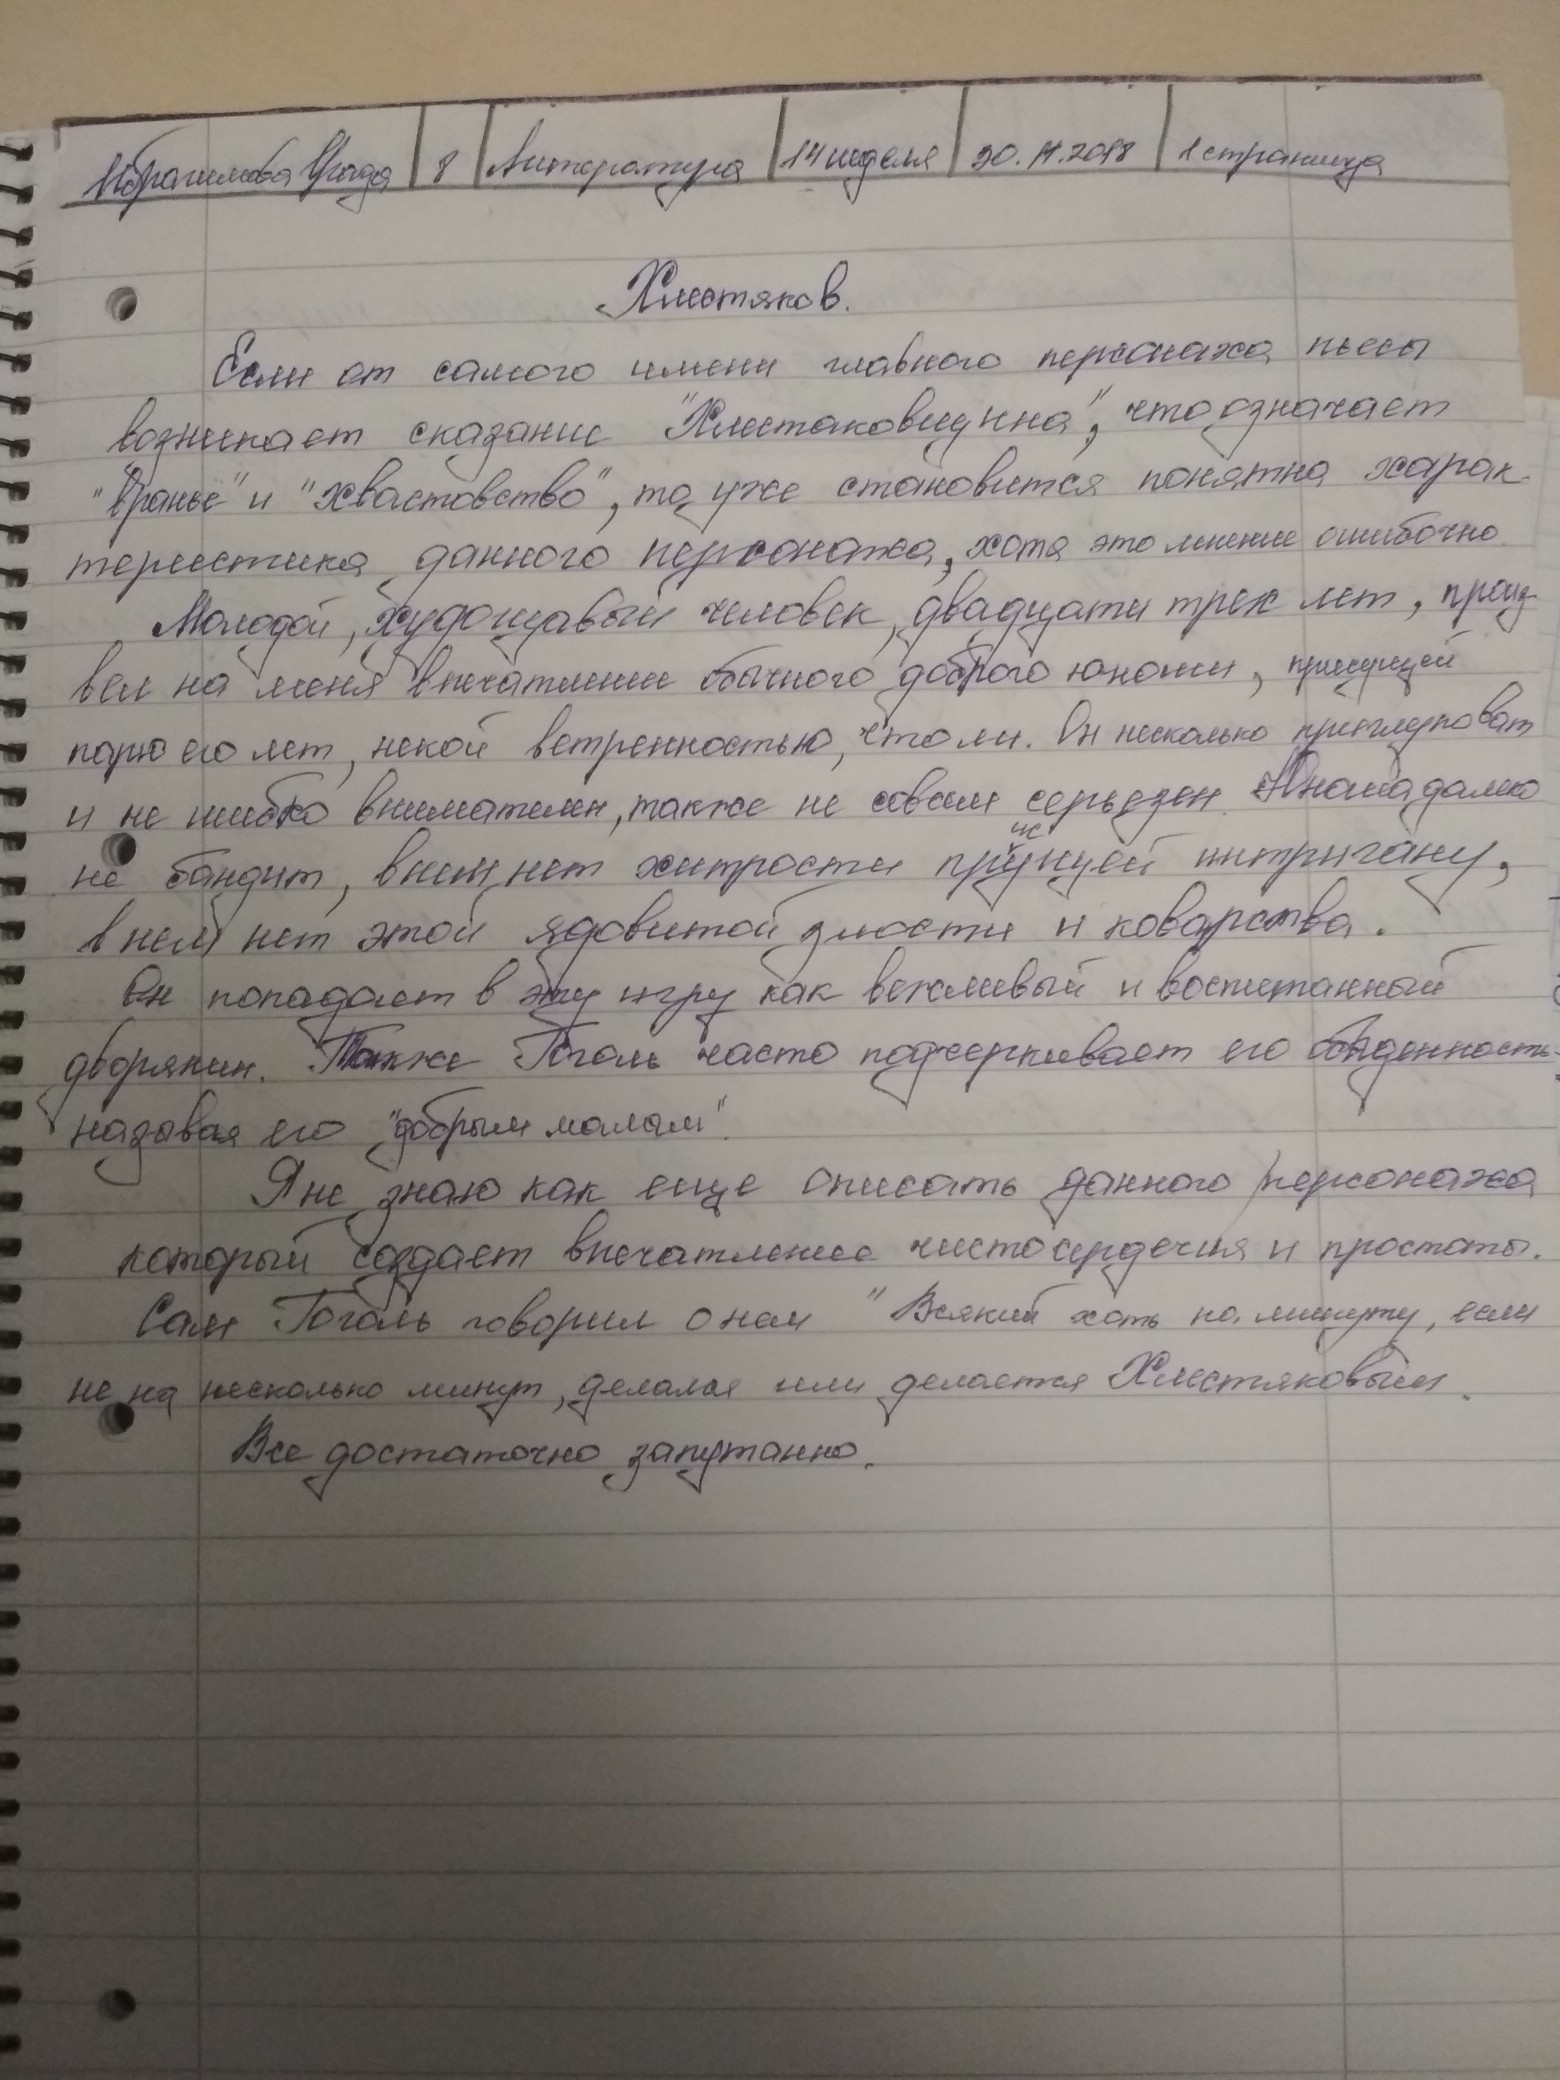 Ибрагимова | 8 | Литература | 14 неделя | 30.11.2018 | 1 страница
Хлестяков.
Если от самого имени главного персонажа пьесы
возникает сказание "Хлестаковщинна", что означает
"вранье" и "хвастовство", то уже становится понятна харак-
теристика данного персонажа, хотя это мнение ошибочно
Молодой, худощавый человек, двадцати трех лет, произ-
вел на меня впечатление обычного доброго юноши, присущей
парю его лет, некой ветренностью, что ли. Он несколько приглуповат
и не шибко внимателен, также не совсем серьезен. Юноша далеко
не бандит, в нем нет хитрости присущей интригану,
в нем нет этой ядовитой злости и коварства.
Он попадает в эту игру как вежливый и воспитанный
дворянин. Также Гоголь часто подчеркивает его обыденность
называя его "добрым малам".
Я не знаю как еще описать данного персонажа
который создает впечатление чистосердечия и простоты.
Сам Гоголь говорил о нем "Всякий хоть на минуту, если
не на несколько минут, делался или делается Хлестяковым.
Все достаточно запутанно.